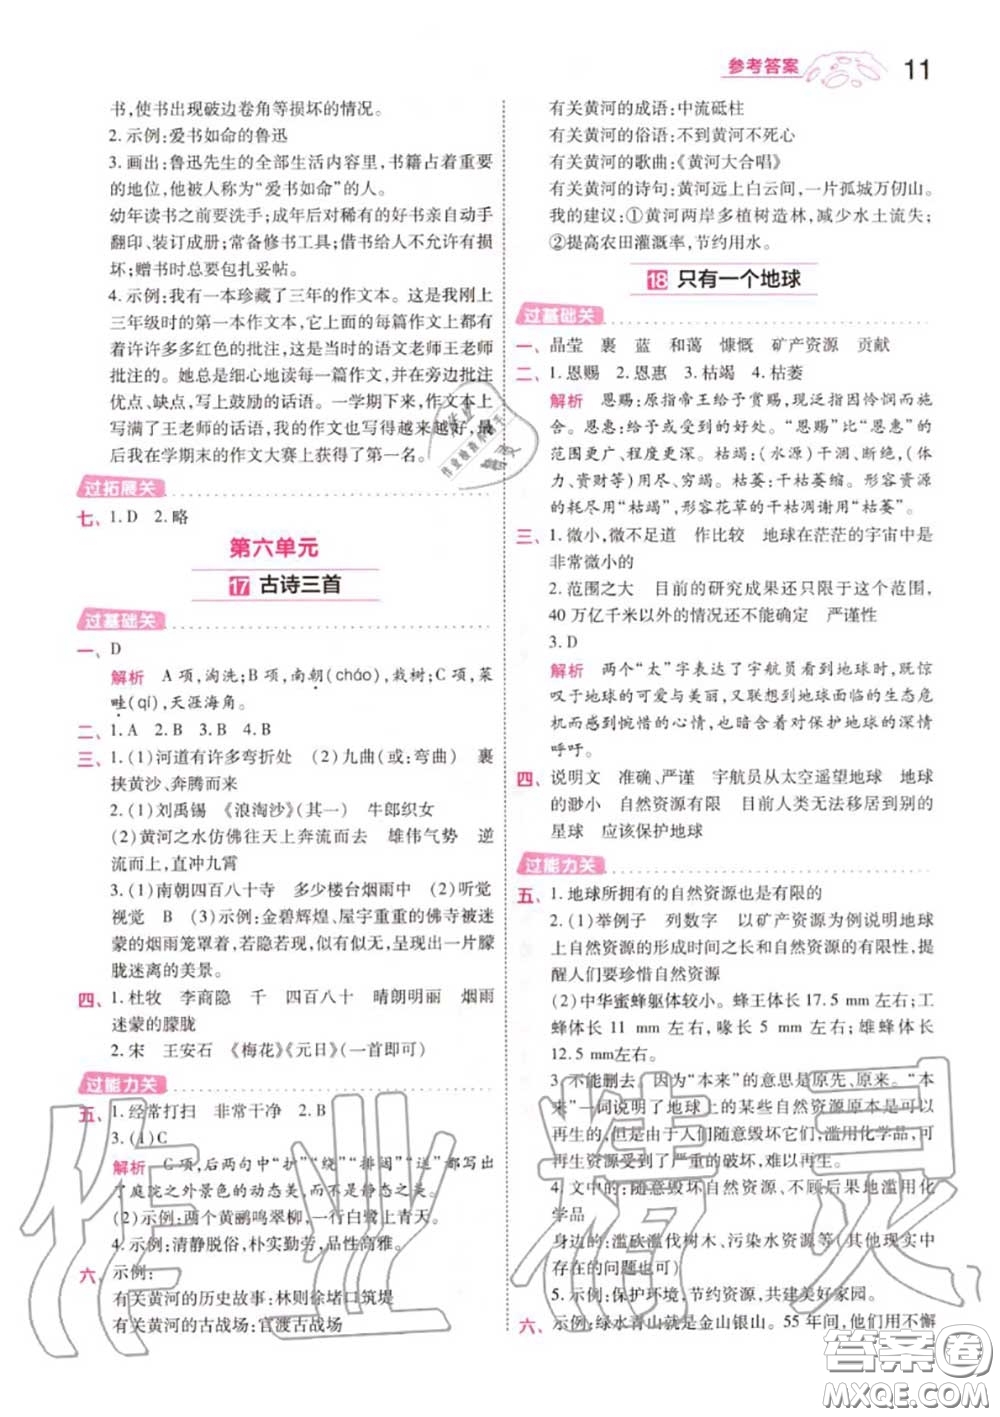 参考答案 11
书,使书出现破边卷角等损坏的情况。
2. 示例:爱书如命的鲁迅
3. 画出:鲁迅先生的全部生活内容里,书籍占着重要
的地位,他被人称为“爱书如命”的人。
幼年读书之前要洗手;成年后对稀有的好书亲自动手
翻印、装订成册;常备修书工具;借书给人不允许有损
坏;赠书时总要包扎妥帖。
4. 示例:我有一本珍藏了三年的作文本。这是我刚上
三年级时的第一本作文本,它上面的每篇作文上都有
着许许多多红色的批注,这是当时的语文老师王老师
批注的。她总是细心地读每一篇作文,并在旁边批注
优点、缺点,写上鼓励的话语。一学期下来,作文本上
写满了王老师的话语,我的作文也写得越来越好,最
后我在学期末的作文大赛上获得了第一名。
过拓展关
七、1. D 2. 略
第六单元
17 古诗三首
过基础关
一、D
解析 A 项,淘洗;B 项,南朝(cháo),栽树;C 项,菜
畦(qí),天涯海角。
二、1. A 2. B 3. B 4. B
三、1. (1)河道有许多弯折处 (2)九曲(或:弯曲) 裹
挟黄沙、奔腾而来
2. (1)刘禹锡 《浪淘沙》(其一) 牛郎织女
(2)黄河之水仿佛往天上奔流而去 雄伟气势 逆
流而上,直冲九霄
3. (1)南朝四百八十寺 多少楼台烟雨中 (2)听觉
视觉 B (3)示例:金碧辉煌、屋宇重重的佛寺被迷
蒙的烟雨笼罩着,若隐若现,似有似无,呈现出一片朦
胧迷离的美景。
四、1. 杜牧 李商隐 千 四百八十 晴朗明丽 烟雨
迷蒙的朦胧
2. 宋 王安石 《梅花》《元日》(一首即可)
过能力关
五、1. 经常打扫 非常干净 2. B
3. (1)C
解析 C 项,后两句中“护”“绕”“排闼”“送”都写出
了庭院之外景色的动态美,而不是静态之美。
(2)示例:两个黄鹂鸣翠柳,一行白鹭上青天。
4. 示例:清静脱俗,朴实勤劳,品性高雅。
六、示例:
有关黄河的历史故事:林则徐堵口筑堤
有关黄河的古战场:官渡古战场
有关黄河的成语:中流砥柱
有关黄河的俗语:不到黄河不死心
有关黄河的歌曲:《黄河大合唱》
有关黄河的诗句:黄河远上白云间,一片孤城万仞山。
我的建议:①黄河两岸多植树造林,减少水土流失;
②提高农田灌溉率,节约用水。
18 只有一个地球
过基础关
一、晶莹 裹 蓝 和蔼 慷慨 矿产资源 贡献
二、1. 恩赐 2. 恩惠 3. 枯竭 4. 枯萎
解析 恩赐:原指帝王给予赏赐,现泛指因怜悯而施
舍。恩惠:给予或受到的好处。“恩赐”比“恩惠”的
范围更广、程度更深。枯竭:(水源)干涸、断绝,(体
力、资财等)用尽。枯萎:干枯萎缩。形容资源
的耗尽用“枯竭”,形容花草的干枯凋谢用“枯萎”。
三、1. 微小,微不足道 作比较 地球在茫茫的宇宙中是
非常微小的
2. 范围之大 目前的研究成果还只限于这个范围,
40 万亿千米以外的情况还不能确定 严谨性
3. D
解析 两个“太”字表达了宇航员看到地球时,既惊
叹于地球的可爱与美丽,又联想到地球面临的生态危
机而感到惋惜的心情,也暗含着对保护地球的深情
呼吁。
四、说明文 准确、严谨 宇航员从太空遥望地球 地球
的渺小 自然资源有限 目前人类无法移居到别的
星球 应该保护地球
过能力关
五、1. 地球所拥有的自然资源也是有限的
2. (1)举例子 列数字 以矿产资源为例说明地球
上自然资源的形成时间之长和自然资源的有限性,提
醒人们要珍惜自然资源
(2)中华蜜蜂躯体较小。蜂王体长 17.5 mm 左右;工
蜂体长 11 mm 左右,喙长 5 mm 左右,雄蜂体长
12.5 mm左右。
3. 不能删去,因为“本来”的意思是原先、原来。“本
来”一词说明了地球上的某些自然资源原本是可以
再生的,但是由于人们随意毁坏它们,滥用化学品,可
再生资源受到了严重的破坏,难以再生。
4. 文中的:随意毁坏自然资源、不顾后果地滥用化
学品
身边的:滥砍滥伐树木、污染水资源等(联系现实中
存在的问题也可)
5. 示例:保护环境,节约资源,共建美好家园。
六、示例:绿水青山就是金山银山。55 年间,他们用不懈
作业精灵
答案圈
MXQE.COM